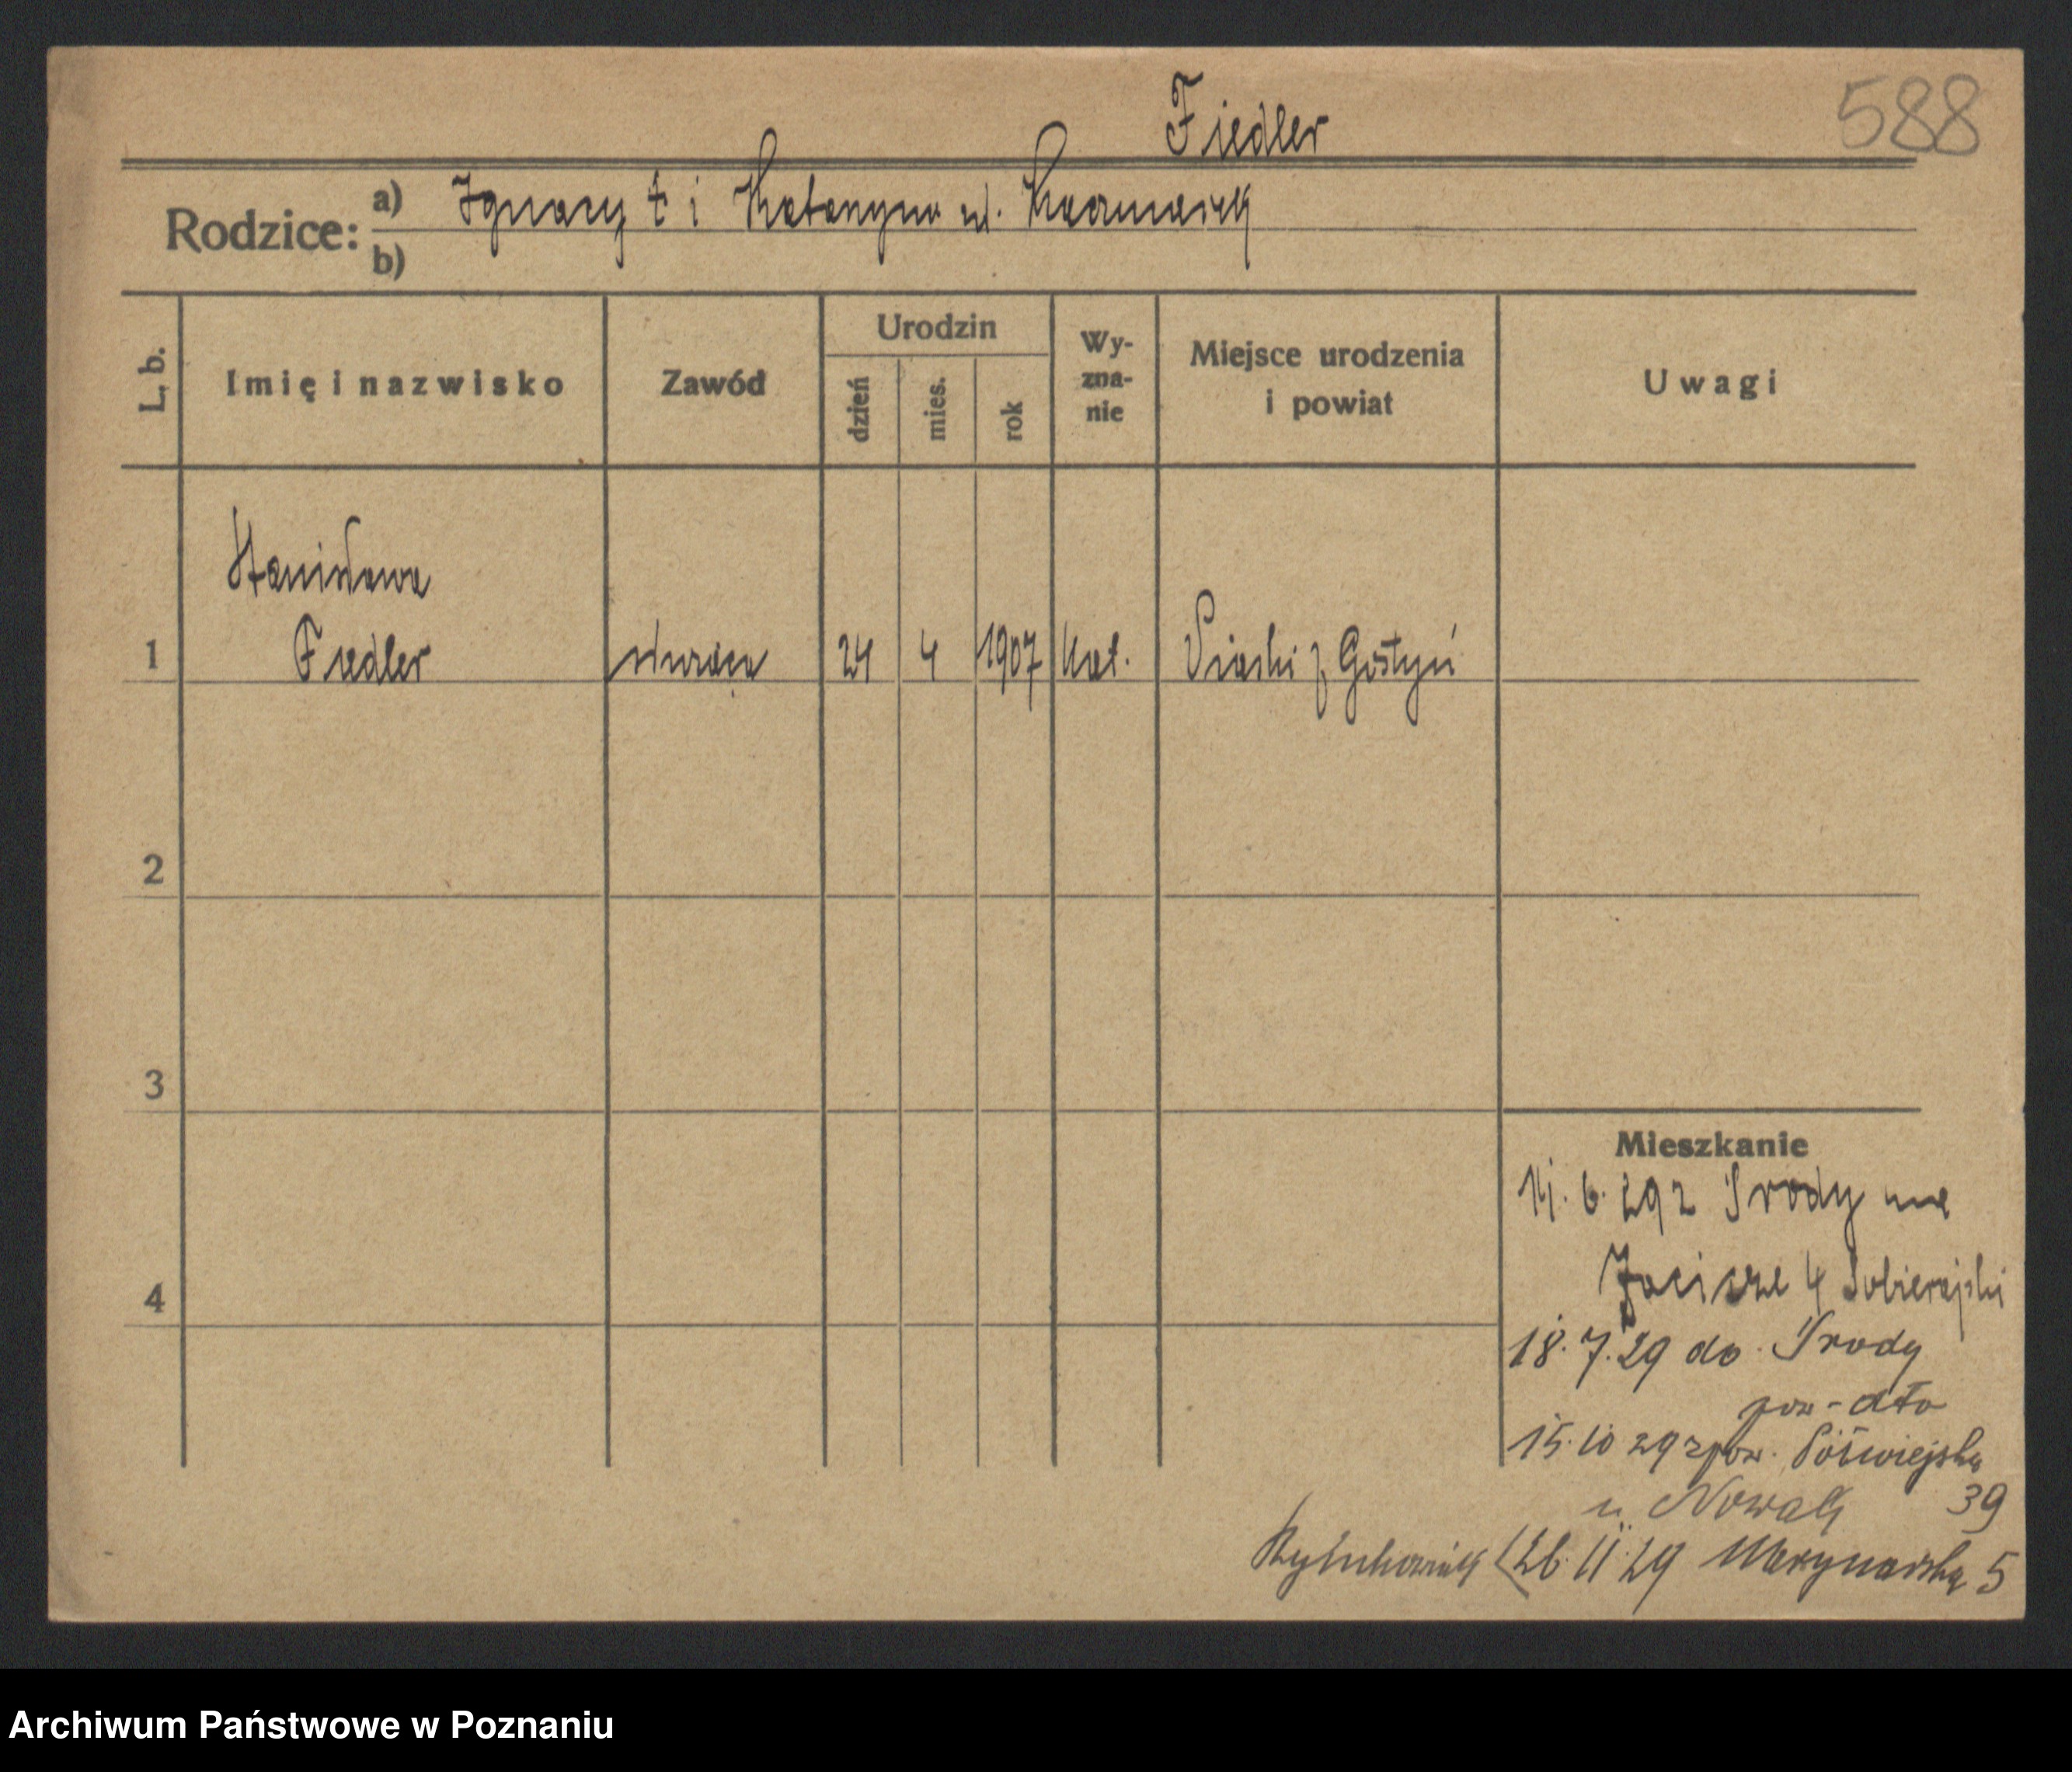 Fiedler
588
Rodzice:
a) Ignacy † i Katarzyna ul. Kaczmarek
b)
L. b.
Imię i nazwisko
Zawód
Urodzin
dzień
mies.
rok
Wy-
zna-
nie
Miejsce urodzenia
i powiat
Uwagi
Stanisława
1 Fiedler służąca 24 4 1907 kat. Piaski z Gostyń
2
3
Mieszkanie
14. 6. 29 z Środy na
Zacisze 4 Sobierajski
4
18. 7. 29 do Środy
pow - dto
15. 10 29 z pow. Półwiejska
u Nowak 39
26. 11. 29 Marynarska 5
Archiwum Państwowe w Poznaniu